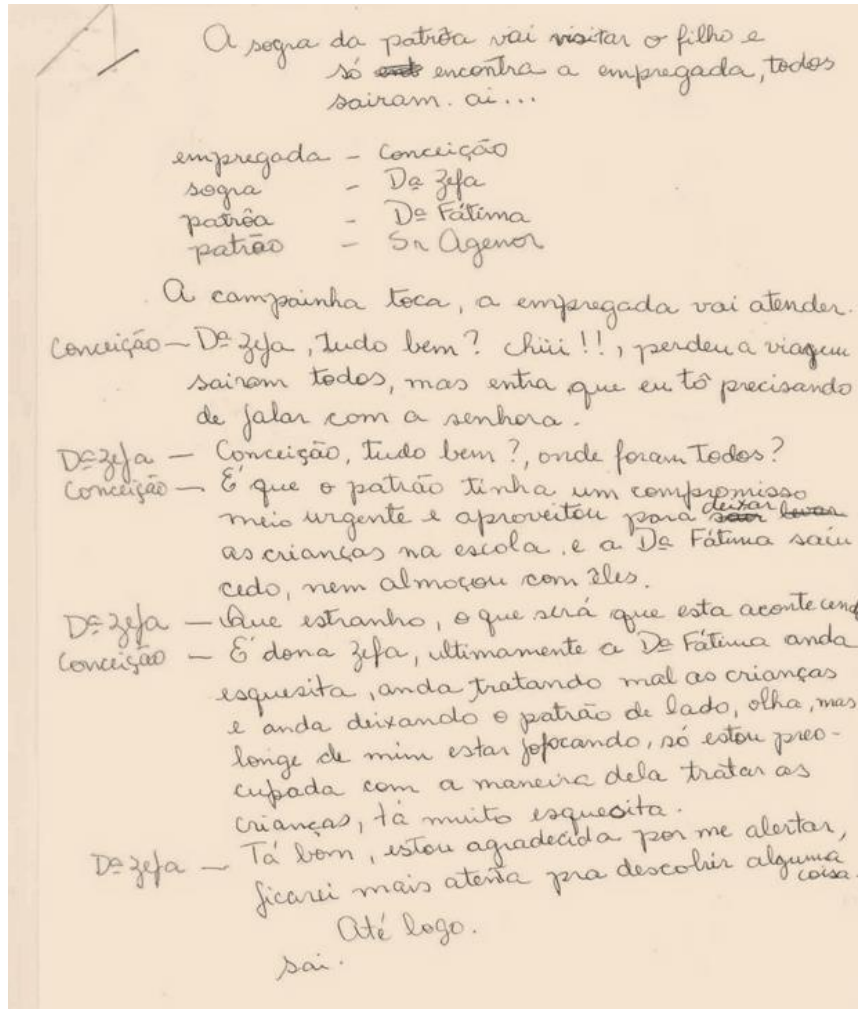 A sogra da patrôa vai visitar o filho e
só encontra a empregada, todos
sairam. ai...
empregada - Conceição
sogra - Dª Zefa
patrôa - Dª Fátima
patrão - Sr Agenor
A campainha toca, a empregada vai atender.
Conceição - Dª Zefa, tudo bem? chiii!!, perdeu a viagem
sairam todos, mas entra que eu tô precisando
de falar com a senhora.
Dª Zefa - Conceição, tudo bem?, onde foram todos?
Conceição - É que o patrão tinha um compromisso
meio urgente e aproveitou para deixar
as crianças na escola, e a Dª Fátima saiu
cedo, nem almoçou com êles.
Dª Zefa - Que estranho, o que será que esta acontecend
Conceição - É dona Zefa, ultimamente a Dª Fátima anda
esquesita, anda tratando mal as crianças
e anda deixando o patrão de lado, olha, mas
longe de mim estar fofocando, só estou preo-
cupada com a maneira dela tratar as
crianças, tá muito esquesita.
Dª Zefa - Tá bom, estou agradecida por me alertar,
ficarei mais atenta pra descobrir alguma
coisa.
Até logo.
sai.